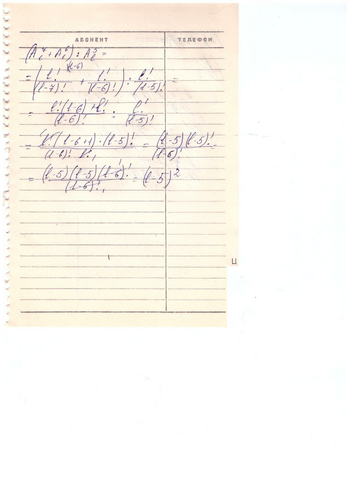 АБОНЕНТ ТЕЛЕФОН
(A⁷ₗ + A⁶ₗ) : A⁵ₗ =
= (l!/(l-7)! + l!/(l-6)!) : l!/(l-5)! =
= (l!(l-6) + l!)/(l-6)! : l!/(l-5)!
= (l!(l-6+1)·(l-5)!)/((l-6)! l!) = ((l-5)(l-5)!)/(l-6)! =
= ((l-5)(l-5)(l-6)!)/(l-6)! = (l-5)²